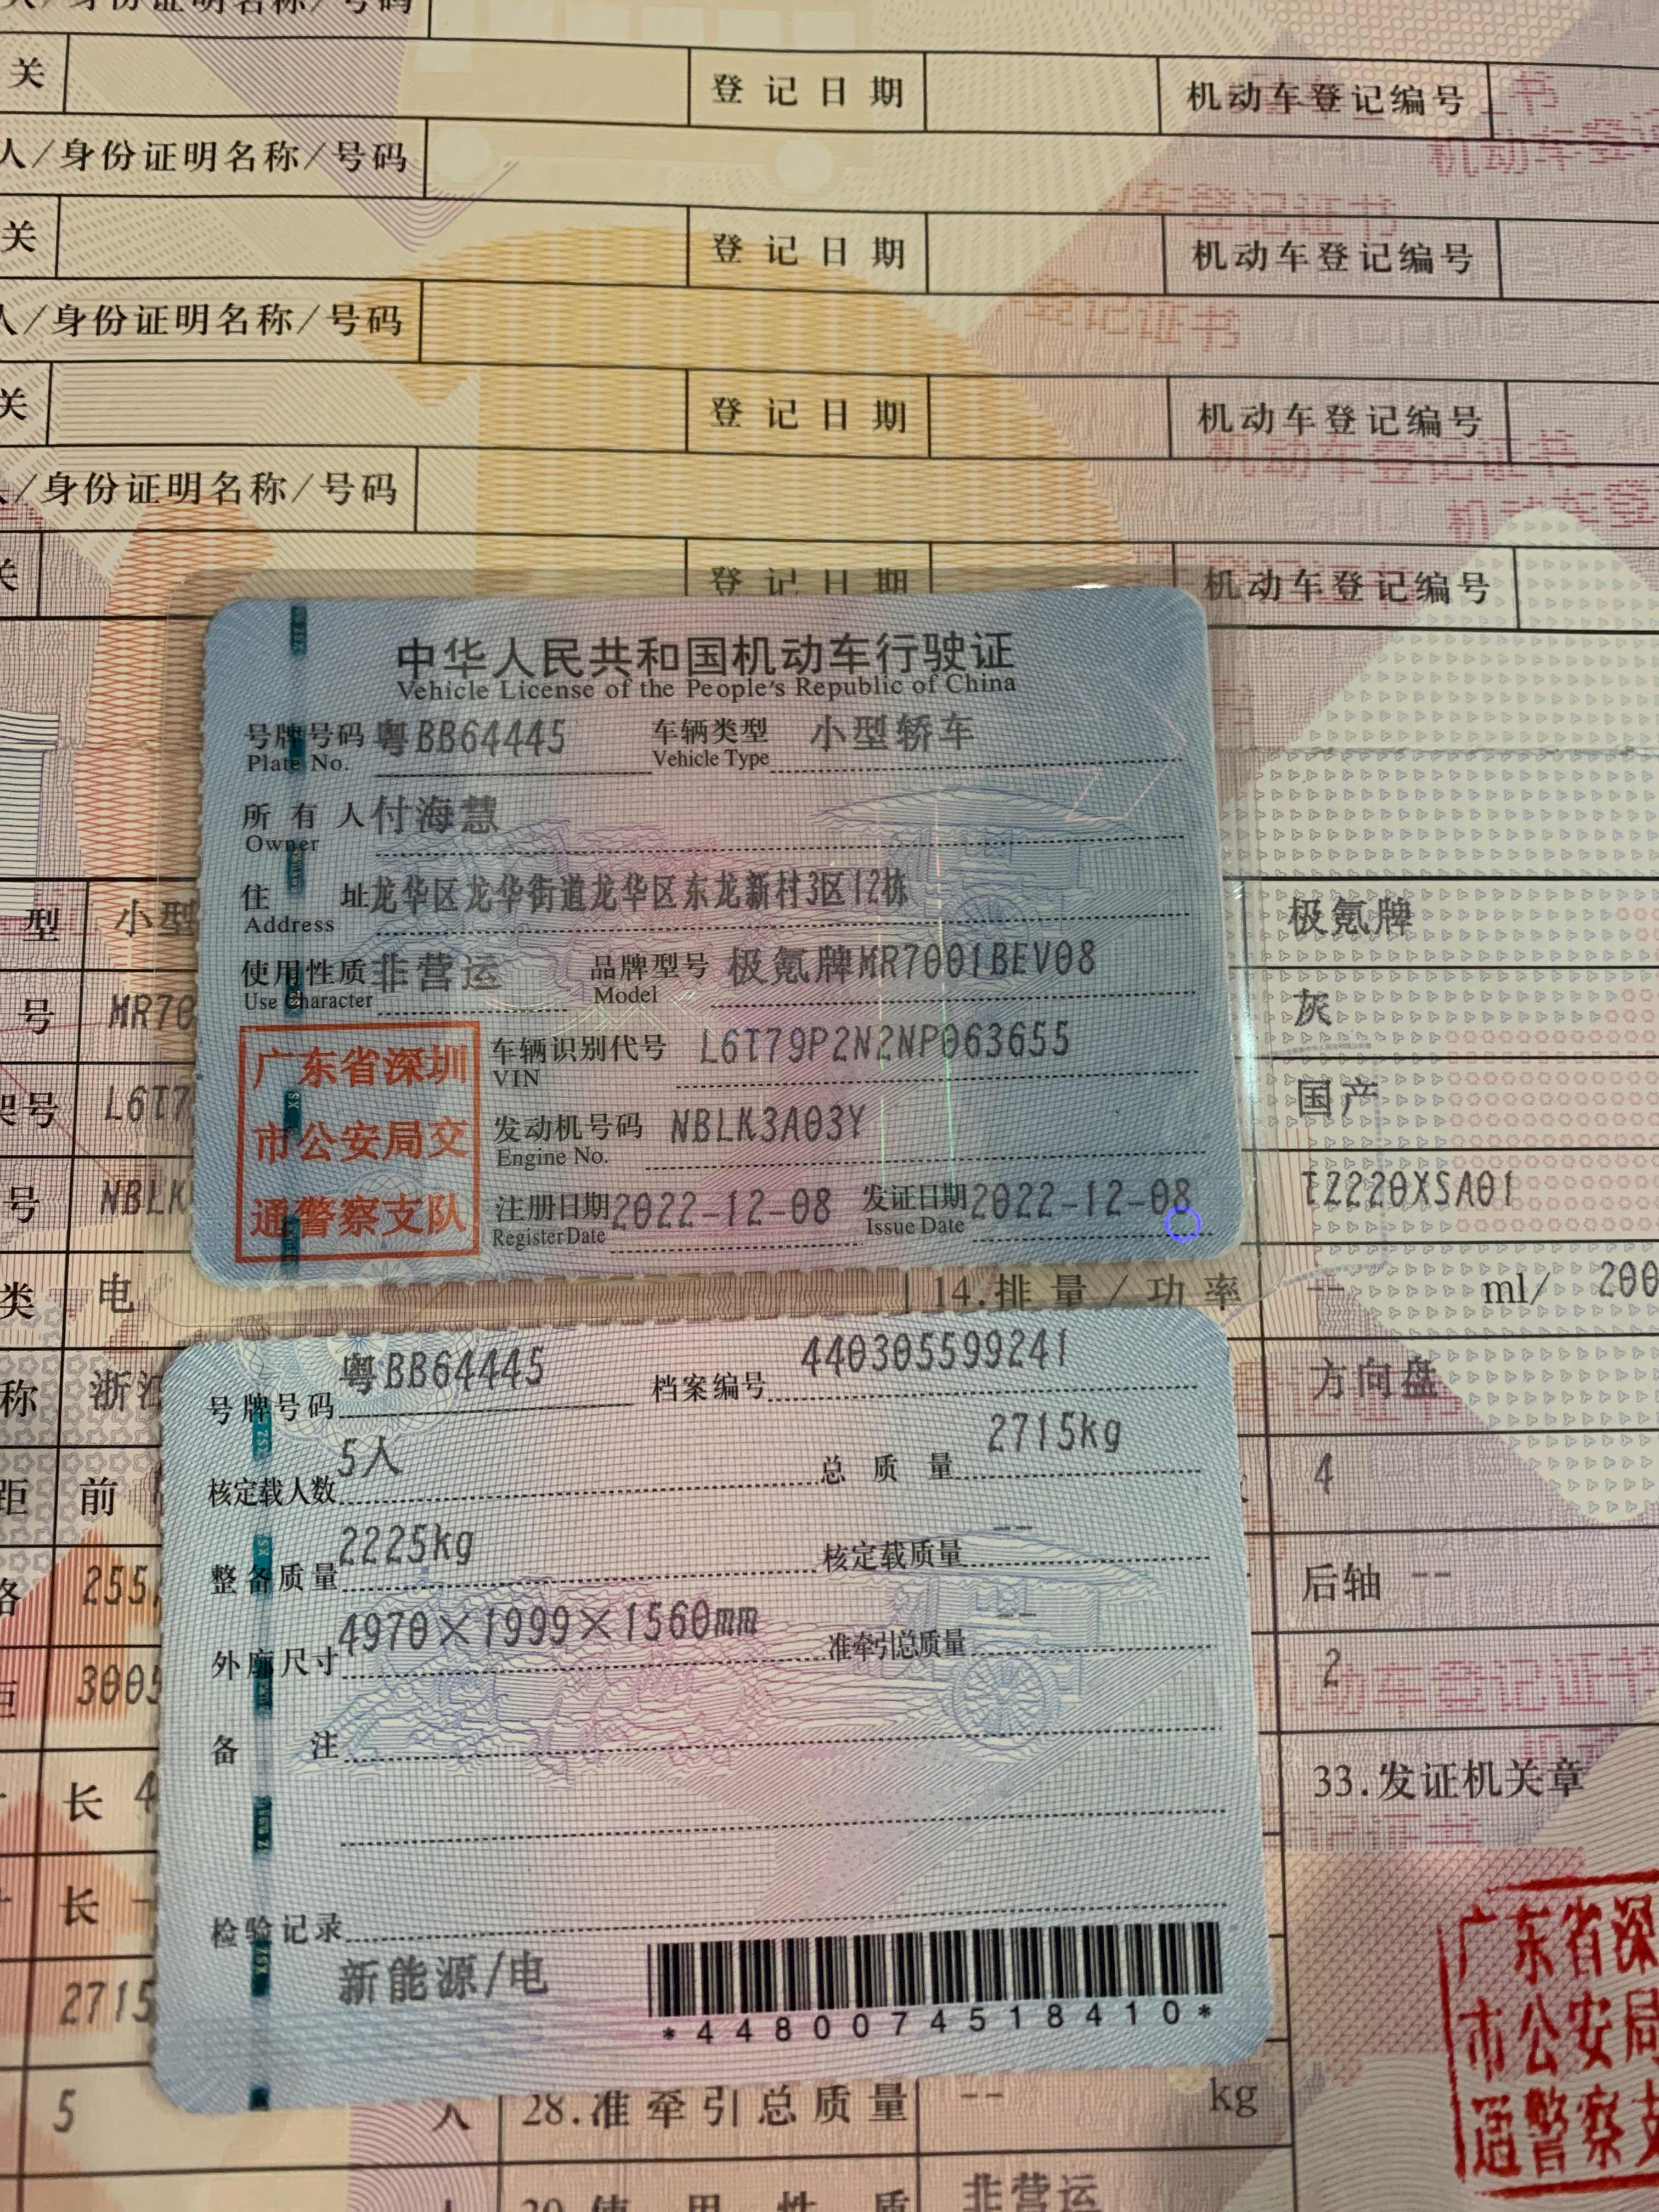 人/身份证明名称/号码
关 登记日期 机动车登记编号
人/身份证明名称/号码
关 登记日期 机动车登记编号
人/身份证明名称/号码
关 登记日期 机动车登记编号
人/身份证明名称/号码
关 登记日期 机动车登记编号
中华人民共和国机动车行驶证
Vehicle License of the People's Republic of China
号牌号码 粤BB64445 车辆类型 小型轿车
Plate No. Vehicle Type
所有人 付海慧
Owner
住址 龙华区龙华街道龙华区东龙新村3区12栋
Address
使用性质 非营运 品牌型号 极氪牌MR7001BEV08
Use Character Model
车辆识别代号 L6T79P2N2NP063655
VIN
发动机号码 NBLK3A03Y
Engine No.
注册日期 2022-12-08 发证日期 2022-12-08
Register Date Issue Date
广东省深圳
市公安局交
通警察支队
型 小型 极氪牌
号 MR70 灰
架号 L6T7 国产
号 NBLK TZ220XSA01
类 电 14.排量/功率 -- ml/ 200
称 浙江 方向盘
距 前 4
格 255/ 后轴 --
距 3005 2
号牌号码 粤BB64445 档案编号 440305599241
核定载人数 5人 总质量 2715kg
整备质量 2225kg 核定载质量 --
外廓尺寸 4970×1999×1560mm 准牵引总质量 --
备注
检验记录
新能源/电
*4480074518410*
长 4 33.发证机关章
长 -
2715
5 人 28.准牵引总质量 -- kg
人 使用性质 非营运
广东省深
市公安局
通警察支